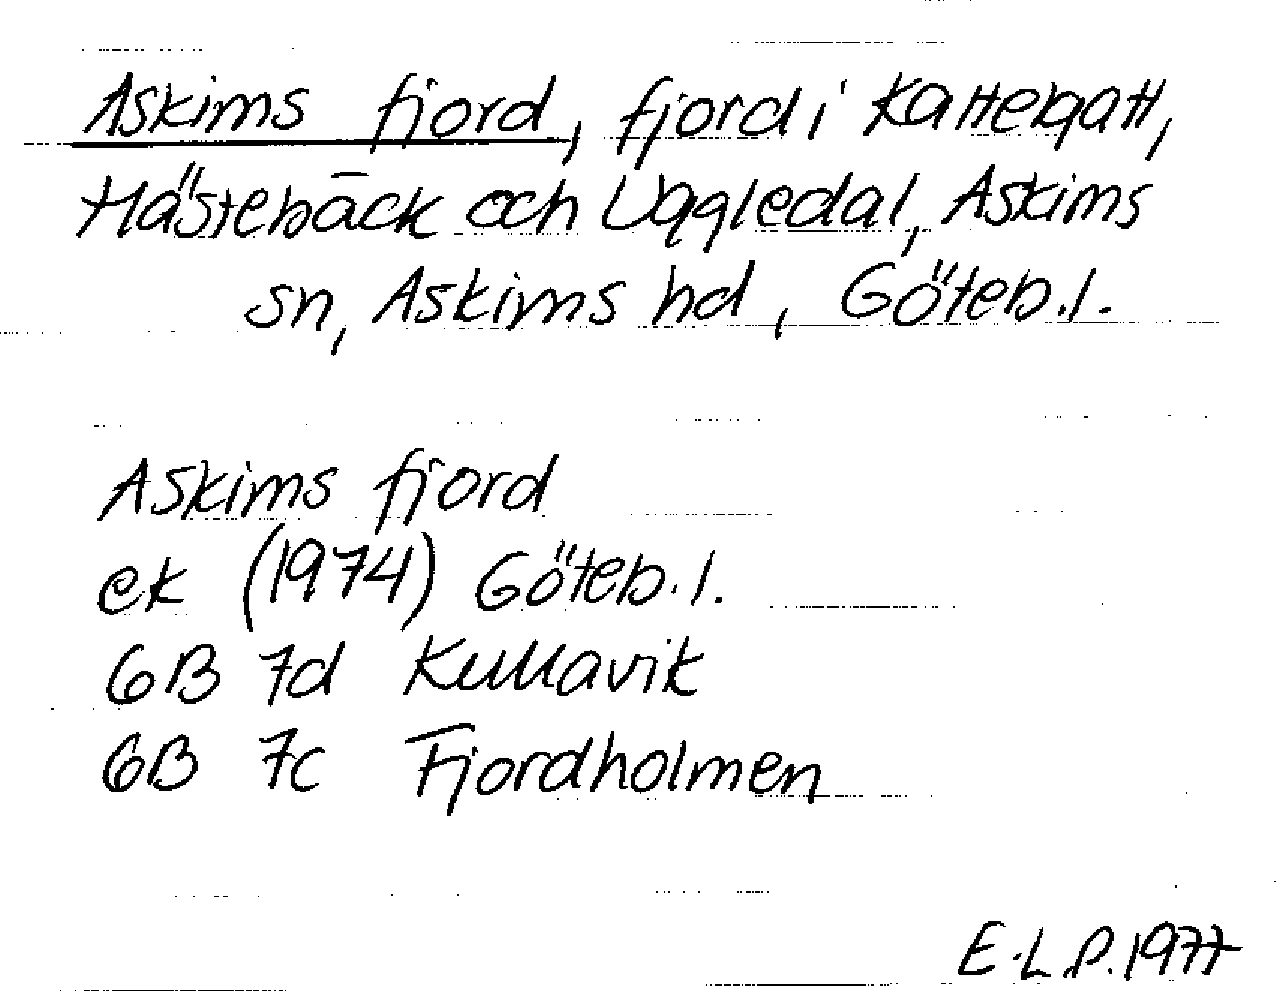 Askims fjord, fjord i Kattegatt,
Hästebäck och Uggledal, Askims
sn, Askims hd, Göteb.l.
Askims fjord
ek (1974) Göteb.l.
6B 7d Kullavik
6B 7c Fjordholmen
E.L.P.1977